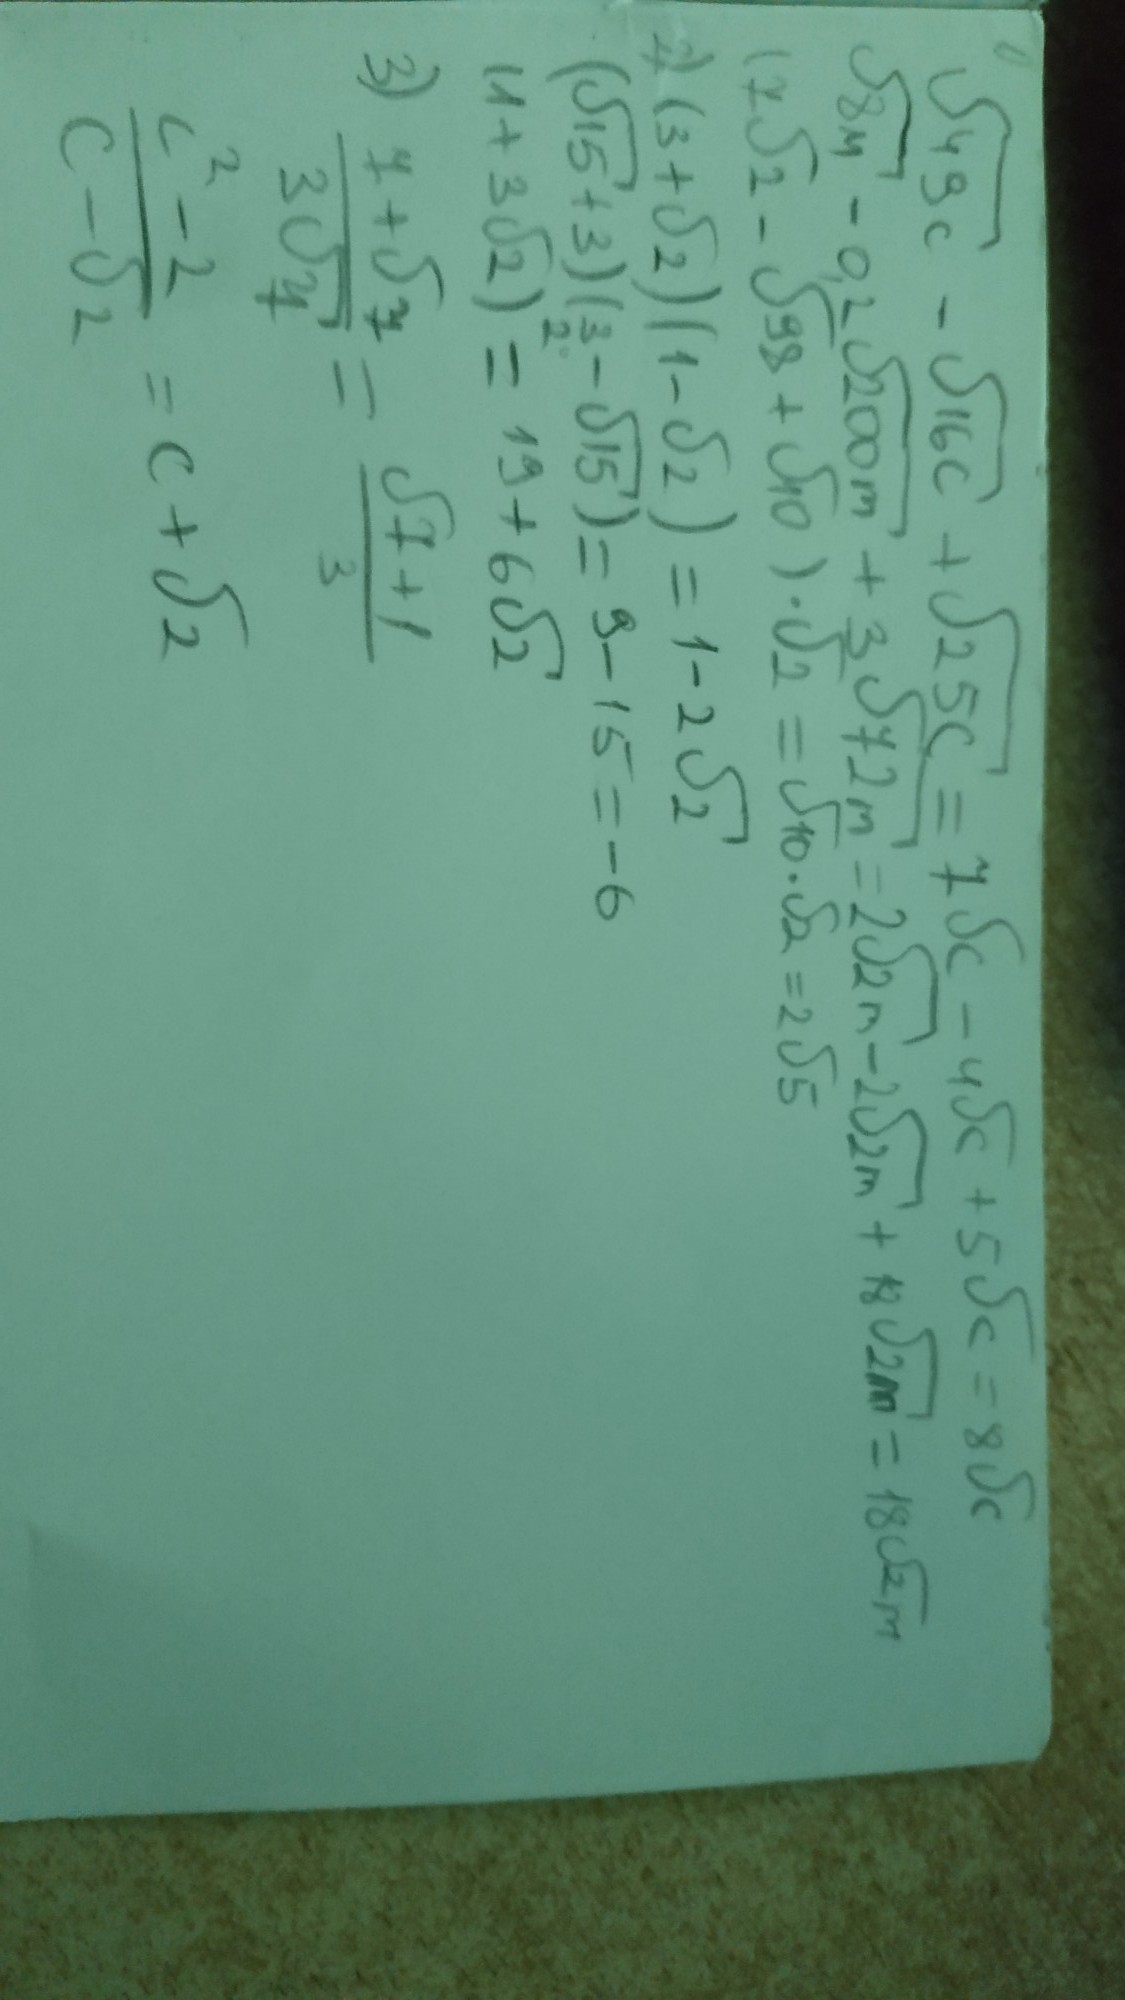 1) √49c - √16c + √25c = 7√c - 4√c + 5√c = 8√c
√8м - 0,2√200m + 3√72m = 2√2m - 2√2m + 18√2m = 18√2m
(7√2 - √98 + √10)·√2 = √10·√2 = 2√5
2) (3+√2)(1-√2) = 1-2√2
(√15+3)(3-√15) = 9-15 = -6
(1+3√2)² = 19+6√2
3) (7+√7)/(3√7) = (√7+1)/3
(c²-2)/(c-√2) = c+√2